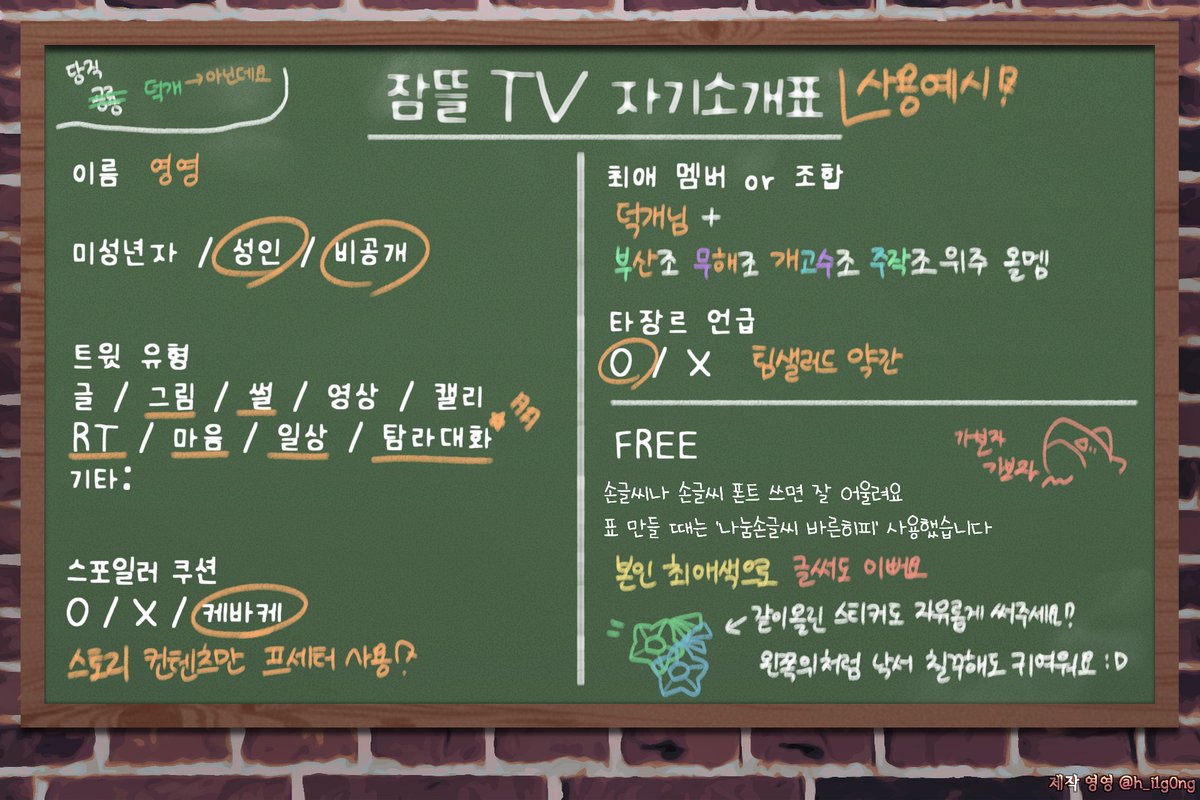 당직
공룡 덕개 →아닌데요
잠뜰 TV 자기소개표 사용예시!?
이름 영영
미성년자 / 성인 / 비공개
트윗 유형
글 / 그림 / 썰 / 영상 / 캘리
RT / 마음 / 일상 / 탐라대화
기타:
스포일러 쿠션
O / X / 케바케
스토리 컨텐츠만 프세터 사용!?
최애 멤버 or 조합
덕개님 +
부산조 무해조 개고수조 주작조 위주 올멤
타장르 언급
O / X 팀샐러드 약간
FREE
가보자
가보자
손글씨나 손글씨 폰트 쓰면 잘 어울려요
표 만들 때는 '나눔손글씨 바른히피' 사용했습니다
본인 최애색으로 글써도 이뻐요
← 같이올린 스티커도 자유롭게 써주세요!?
왼쪽위처럼 낙서 칠꾸해도 귀여워요 :D
제작 영영 @h_i1g0ng